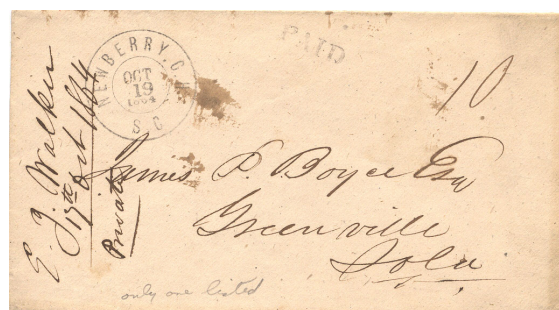 NEWBERRY, C.H.
OCT
19
1864
S C
PAID
10
E. J. Walker
17th Oct 1864
Private
James P. Boyce Esq
Greenville
So Ca
only one listed